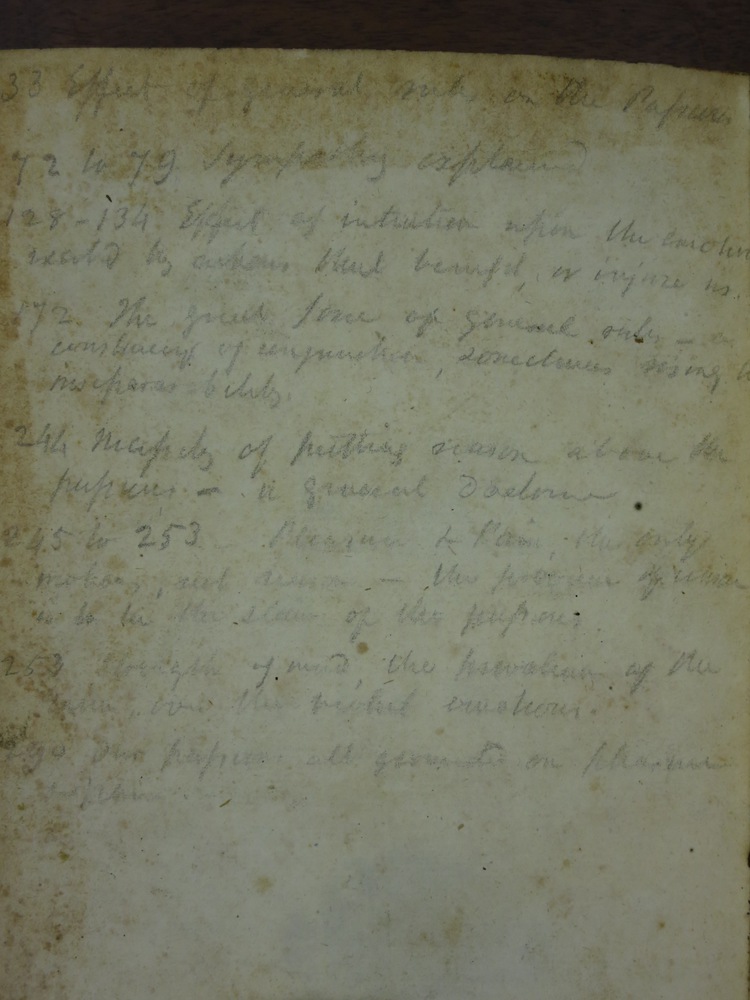 33 Effect of general rules on the Passions
72 to 79 Sympathy explained
128-134 Effect of intention upon the emotions
excited by actions that benefit, or injure us.
172 The great force of general rules - a
constancy of conjunction, sometimes rising to
inseparability.
244 of putting reason above the
passions - a general
245 to 253 Pleasure & Pain, the only
motives, not reason - the province of reason
is to be the slave of the passions
253 Strength of mind, the prevalence of the
calm, over the violent emotions.
290 Our passions all grounded on pleasure
pain